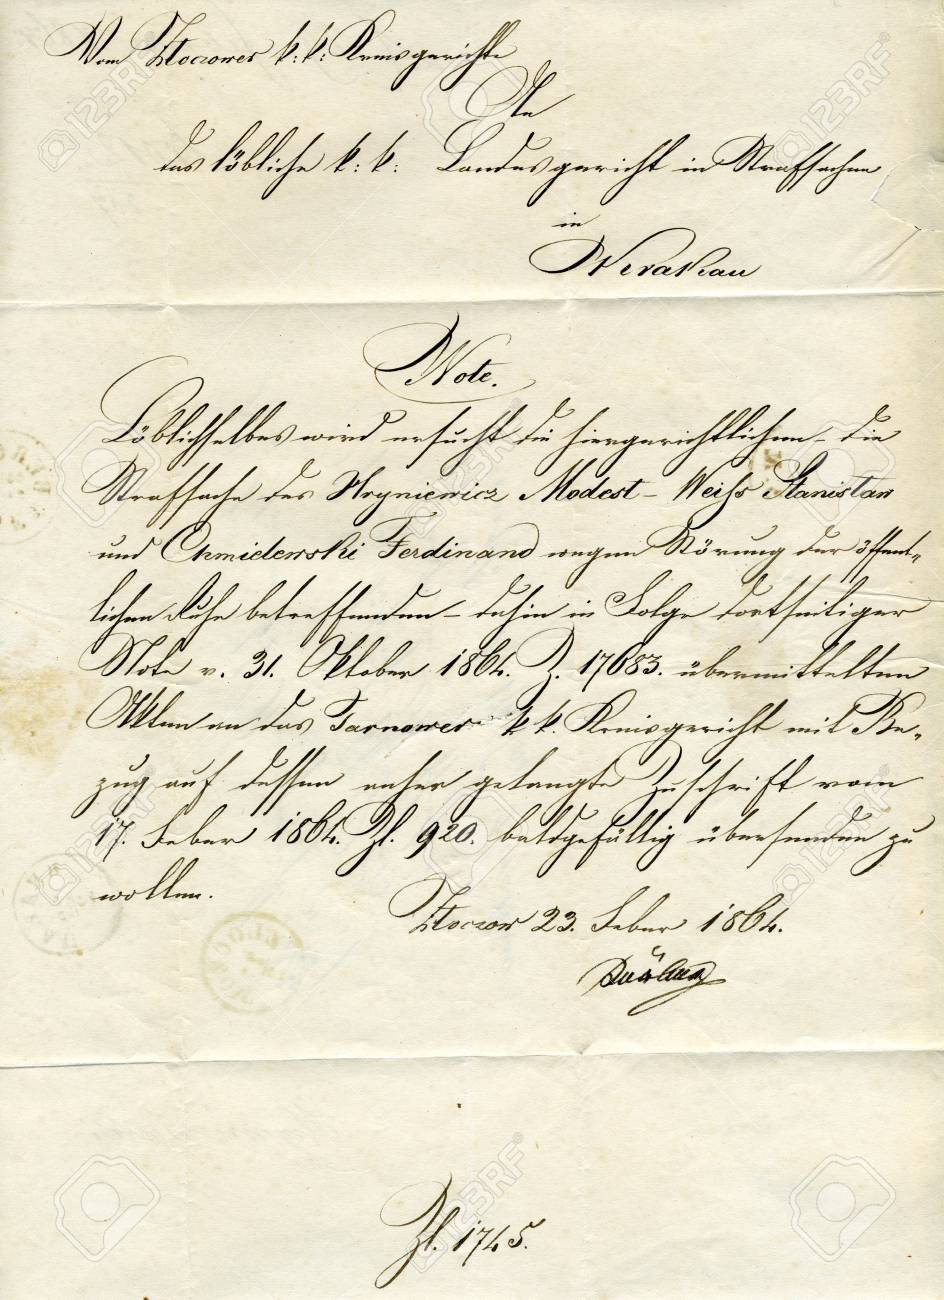 Vom Złoczower k: k: Kreisgerichte
An
das löbliche k: k: Landesgericht in Strafsachen
in
Krakau
Note.
Löblichselbes wird ersucht die hiergerichtlichen – die
Strafsache des Hryniewicz Modest – Weiss Stanislaw
und Chmielewski Ferdinand wegen Störung der öffent-
lichen Ruhe betreffenden – dahin in Folge dortseitiger
Note v. 31. Oktober 1864. Z. 17683. übermittelten
Akten an das Tarnower k k. Kreisgericht mit Be-
zug auf dessen anher gelangte Zuschrift vom
17. Feber 1864. Zl. 920. baldgefällig übersenden zu
wollen.
Złoczow 23. Feber 1864.
Zl. 1745.
123RF